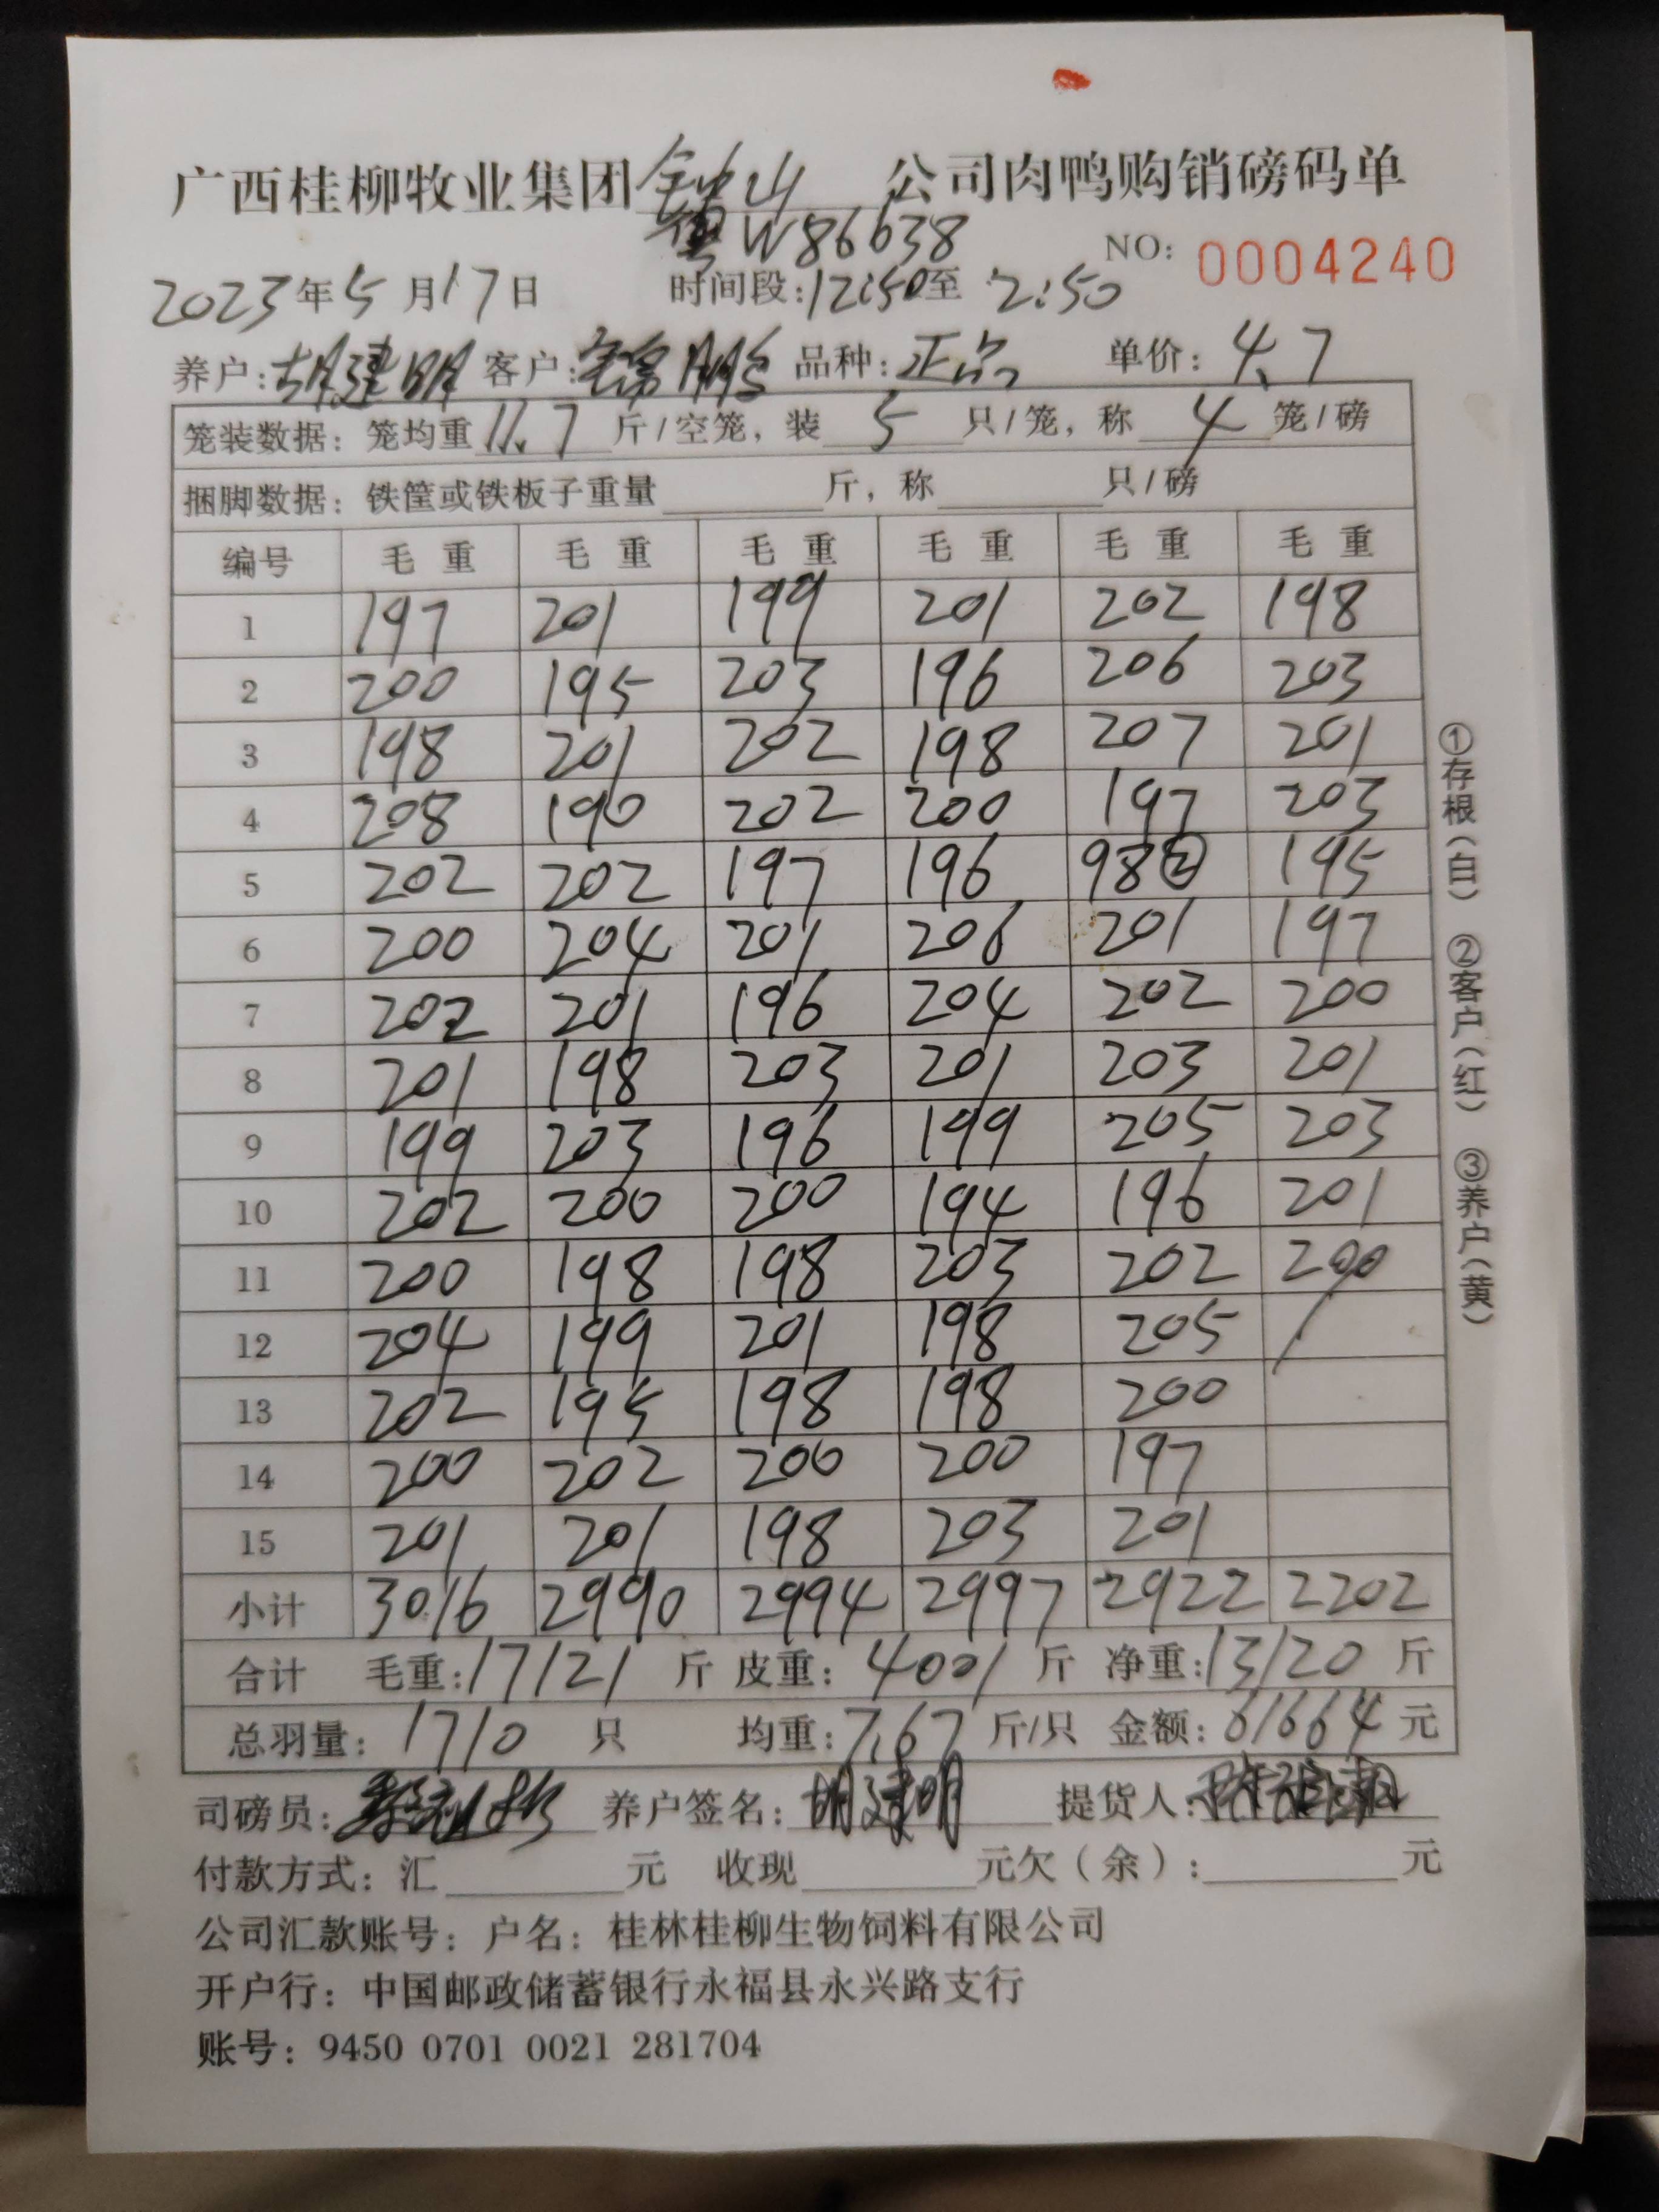 广西桂柳牧业集团 钟山 公司肉鸭购销磅码单
粤W86638
NO: 0004240
2023年5月17日 时间段:12:50至 2:50
养户:胡建明 客户: 品种:正品 单价:4.7
笼装数据:笼均重11.7斤/空笼,装5只/笼,称4笼/磅
捆脚数据:铁筐或铁板子重量 斤,称 只/磅
编号 毛重 毛重 毛重 毛重 毛重 毛重
1 197 201 199 201 202 198
2 200 195 203 196 206 203
3 198 201 202 198 207 201
4 208 190 202 200 197 203
5 202 202 197 196 98② 195
6 200 204 201 206 201 197
7 202 201 196 204 202 200
8 201 198 203 201 203 201
9 199 203 196 199 205 203
10 202 200 200 194 196 201
11 200 198 198 203 202 200
12 204 199 201 198 205
13 202 195 198 198 200
14 200 202 200 200 197
15 201 201 198 203 201
小计 3016 2990 2994 2997 2922 2202
合计 毛重:17121斤 皮重:4001斤 净重:13120斤
总羽量:1710只 均重:7.67斤/只 金额:61664元
司磅员: 养户签名:胡建明 提货人:
付款方式:汇 元 收现 元欠(余): 元
公司汇款账号:户名:桂林桂柳生物饲料有限公司
开户行:中国邮政储蓄银行永福县永兴路支行
账号:9450 0701 0021 281704
①存根(白) ②客户(红) ③养户(黄)